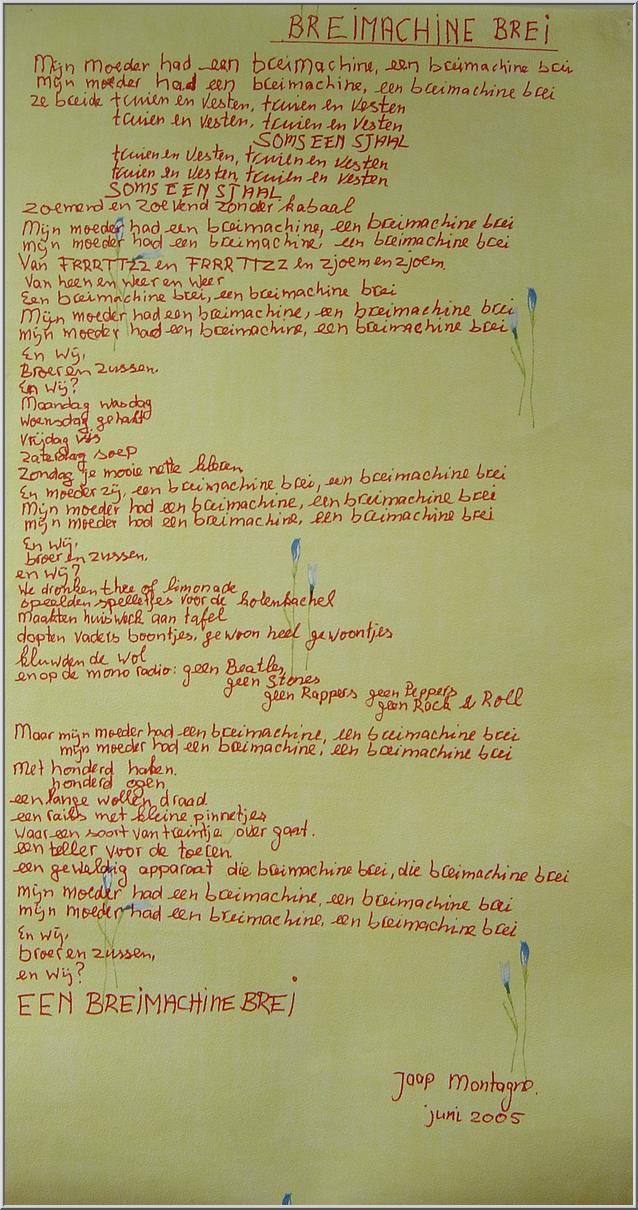 BREIMACHINE BREI
Mijn moeder had een breimachine, een breimachine brei
mijn moeder had een breimachine, een breimachine brei
ze breide truien en vesten, truien en vesten
truien en vesten, truien en vesten
SOMS EEN SJAAL
truien en vesten, truien en vesten
truien en vesten, truien en vesten
SOMS EEN SJAAL
zoemend en zoevend zonder kabaal
Mijn moeder had een breimachine, een breimachine brei
mijn moeder had een breimachine, een breimachine brei
Van FRRRTTZZ en FRRRTTZZ en zjoem en zjoem.
Van heen en weer en weer
Een breimachine brei, een breimachine brei
Mijn moeder had een breimachine, een breimachine brei
mijn moeder had een breimachine, een breimachine brei
En wij,
Broer en zussen.
En wij?
Maandag wasdag
Woensdag gehakt
Vrijdag vis
Zaterdag soep
Zondag je mooie nette kleren
En moeder zij, een breimachine brei, een breimachine brei
Mijn moeder had een breimachine, een breimachine brei
mijn moeder had een breimachine, een breimachine brei
En wij,
broer en zussen,
en wij?
We dronken thee of limonade
speelden spelletjes voor de kolenkachel
maakten huiswerk aan tafel
dopten vaders boontjes, gewoon heel gewoontjes
kluwden de wol
en op de mono radio: geen Beatles
geen Stones
geen Rappers geen Peppers
geen Rock & Roll
Maar mijn moeder had een breimachine, een breimachine brei
mijn moeder had een breimachine, een breimachine brei
Met honderd haken.
honderd ogen
een lange wollen draad.
een rails met kleine pinnetjes
waar een soort van treintje over gaat.
een teller voor de toeren
een geweldig apparaat die breimachine brei, die breimachine brei
mijn moeder had een breimachine, een breimachine brei
mijn moeder had een breimachine, een breimachine brei
En wij,
broer en zussen,
en wij?
EEN BREIMACHINE BREI
Jaap Montagne.
juni 2005